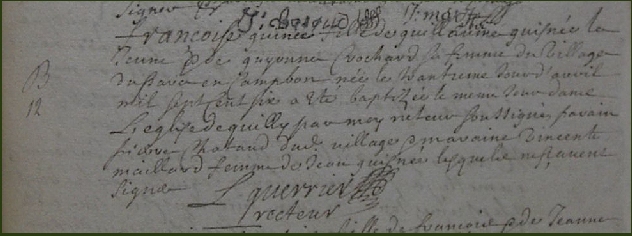 Signe
francoise quinée fille de guillaume quisnée le
Jeune & de guyonne Crochard sa femme du village
du en Campbon née le trantieme Jour d'avril
mil sept cent six a été baptizée le meme Jour dans
L'eglise de quilly par moy recteur soussigné parain
pierre dud. village & maraine vincente
maillard femme de Jean quisnée lesquels ne sçavent
Signer
B
12
L guerrier
recteur
fille de francois & de Jeanne